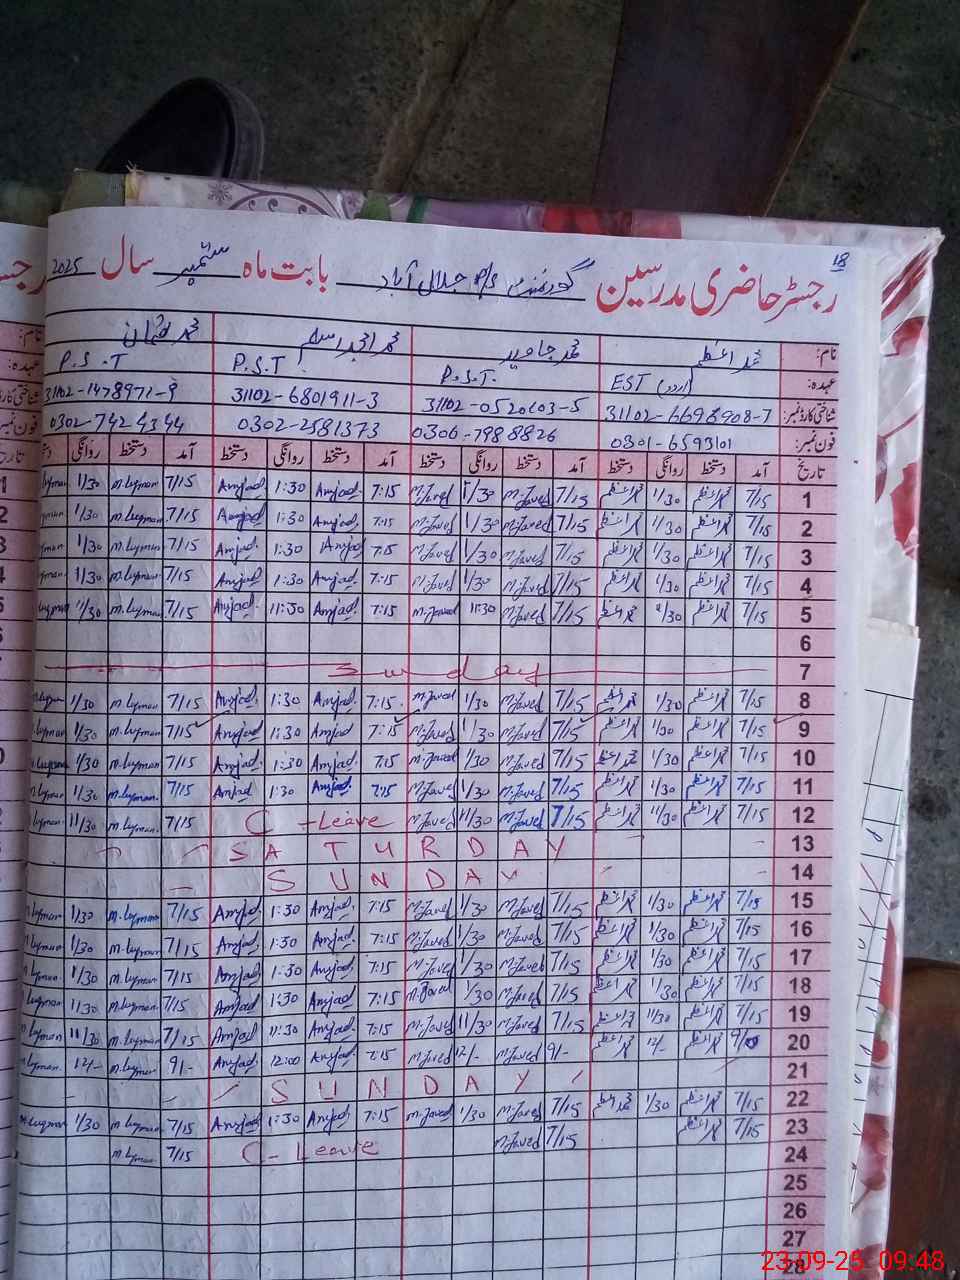 18
رجسٹر حاضری مدرسین گورنمنٹ P/S جلال آباد بابت ماہ ستمبر سال 2025
نام: محمد اعظم محمد جاوید محمد امجد اسلم محمد لقمان
عہدہ: EST (اردو) P.S.T. P.S.T. P.S.T
شناختی کارڈ نمبر: 31102-0520603-5 31102-6801911-3 31102-1478971-9
فون نمبر: 0301-6593101 0306-7988826 0302-2581373 0302-742 4344
تاریخ آمد دستخط روانگی دستخط آمد دستخط روانگی دستخط آمد دستخط روانگی دستخط آمد دستخط روانگی
1 7/15 محمد اعظم 1/30 محمد اعظم 7/15 M.Javed 1/30 M.Javed 7:15 Amjad 1:30 Amjad 7/15 M.Luqman 1/30
2 7/15 محمد اعظم 1/30 محمد اعظم 7/15 M.Javed 1/30 M.Javed 7:15 Amjad 1:30 Amjad 7/15 M.Luqman 1/30
3 7/15 محمد اعظم 1/30 محمد اعظم 7/15 M.Javed 1/30 M.Javed 7:15 Amjad 1:30 Amjad 7/15 M.Luqman 1/30
4 7/15 محمد اعظم 1/30 محمد اعظم 7/15 M.Javed 1/30 M.Javed 7:15 Amjad 1:30 Amjad 7/15 M.Luqman 1/30
5 7/15 محمد اعظم محمد اعظم 7/15 M.Javed 11:30 M.Javed 7:15 Amjad 11:30 Amjad 7/15 M.Luqman 11/30 Luqman
6
7 Sunday
8 7/15 محمد اعظم 1/30 محمد اعظم 7/15 M.Javed 1/30 M.Javed 7:15 Amjad 1:30 Amjad 7/15 M.Luqman 1/30
9 7/15 محمد اعظم 1/30 محمد اعظم 7/15 M.Javed 1/30 M.Javed 7:15 Amjad 1:30 Amjad 7/15 M.Luqman 1/30 Luqman
10 7/15 محمد اعظم 1/30 محمد اعظم 7/15 M.Javed 1/30 M.Javed 7:15 Amjad 1:30 Amjad 7/15 M.Luqman 1/30 Luqman
11 7/15 محمد اعظم 1/30 محمد اعظم 7/15 M.Javed 1/30 M.Javed 7:15 Amjad 1:30 Amjad 7/15 M.Luqman 1/30 Luqman
12 7/15 محمد اعظم 11/30 محمد اعظم 7/15 M.Javed 11/30 M.Javed C-Leave 7/15 M.Luqman 11/30 Luqman
13 SATURDAY
14 SUNDAY
15 7/15 محمد اعظم 1/30 محمد اعظم 7/15 M.Javed 1/30 M.Javed 7:15 Amjad 1:30 Amjad 7/15 M.Luqman 1/30 Luqman
16 7/15 محمد اعظم 1/30 محمد اعظم 7/15 M.Javed 1/30 M.Javed 7:15 Amjad 1:30 Amjad 7/15 M.Luqman 1/30 Luqman
17 7/15 محمد اعظم 1/30 محمد اعظم 7/15 M.Javed 1/30 M.Javed 7:15 Amjad 1:30 Amjad 7/15 M.Luqman 1/30 Luqman
18 7/15 محمد اعظم 1/30 محمد اعظم 7/15 M.Javed 1/30 M.Javed 7:15 Amjad 1:30 Amjad 7/15 M.Luqman 11/30 Luqman
19 7/15 محمد اعظم 11/30 محمد اعظم 7/15 M.Javed 11/30 M.Javed 7:15 Amjad 11:30 Amjad 7/15 M.Luqman 11/30 Luqman
20 محمد اعظم 12/- محمد اعظم 9/- M.Javed 12/- M.Javed 7:15 Amjad 12:00 Amjad 9/- M.Luqman 12/- Luqman
21 SUNDAY
22 7/15 محمد اعظم 1/30 محمد اعظم 7/15 M.Javed 1/30 M.Javed 7:15 Amjad 1:30 Amjad 7/15 M.Luqman 1/30 M.Luqman
23 7/15 محمد اعظم 7/15 M.Javed C-Leave 7/15 M.Luqman
24
25
26
27
28
23-09-25 09:48